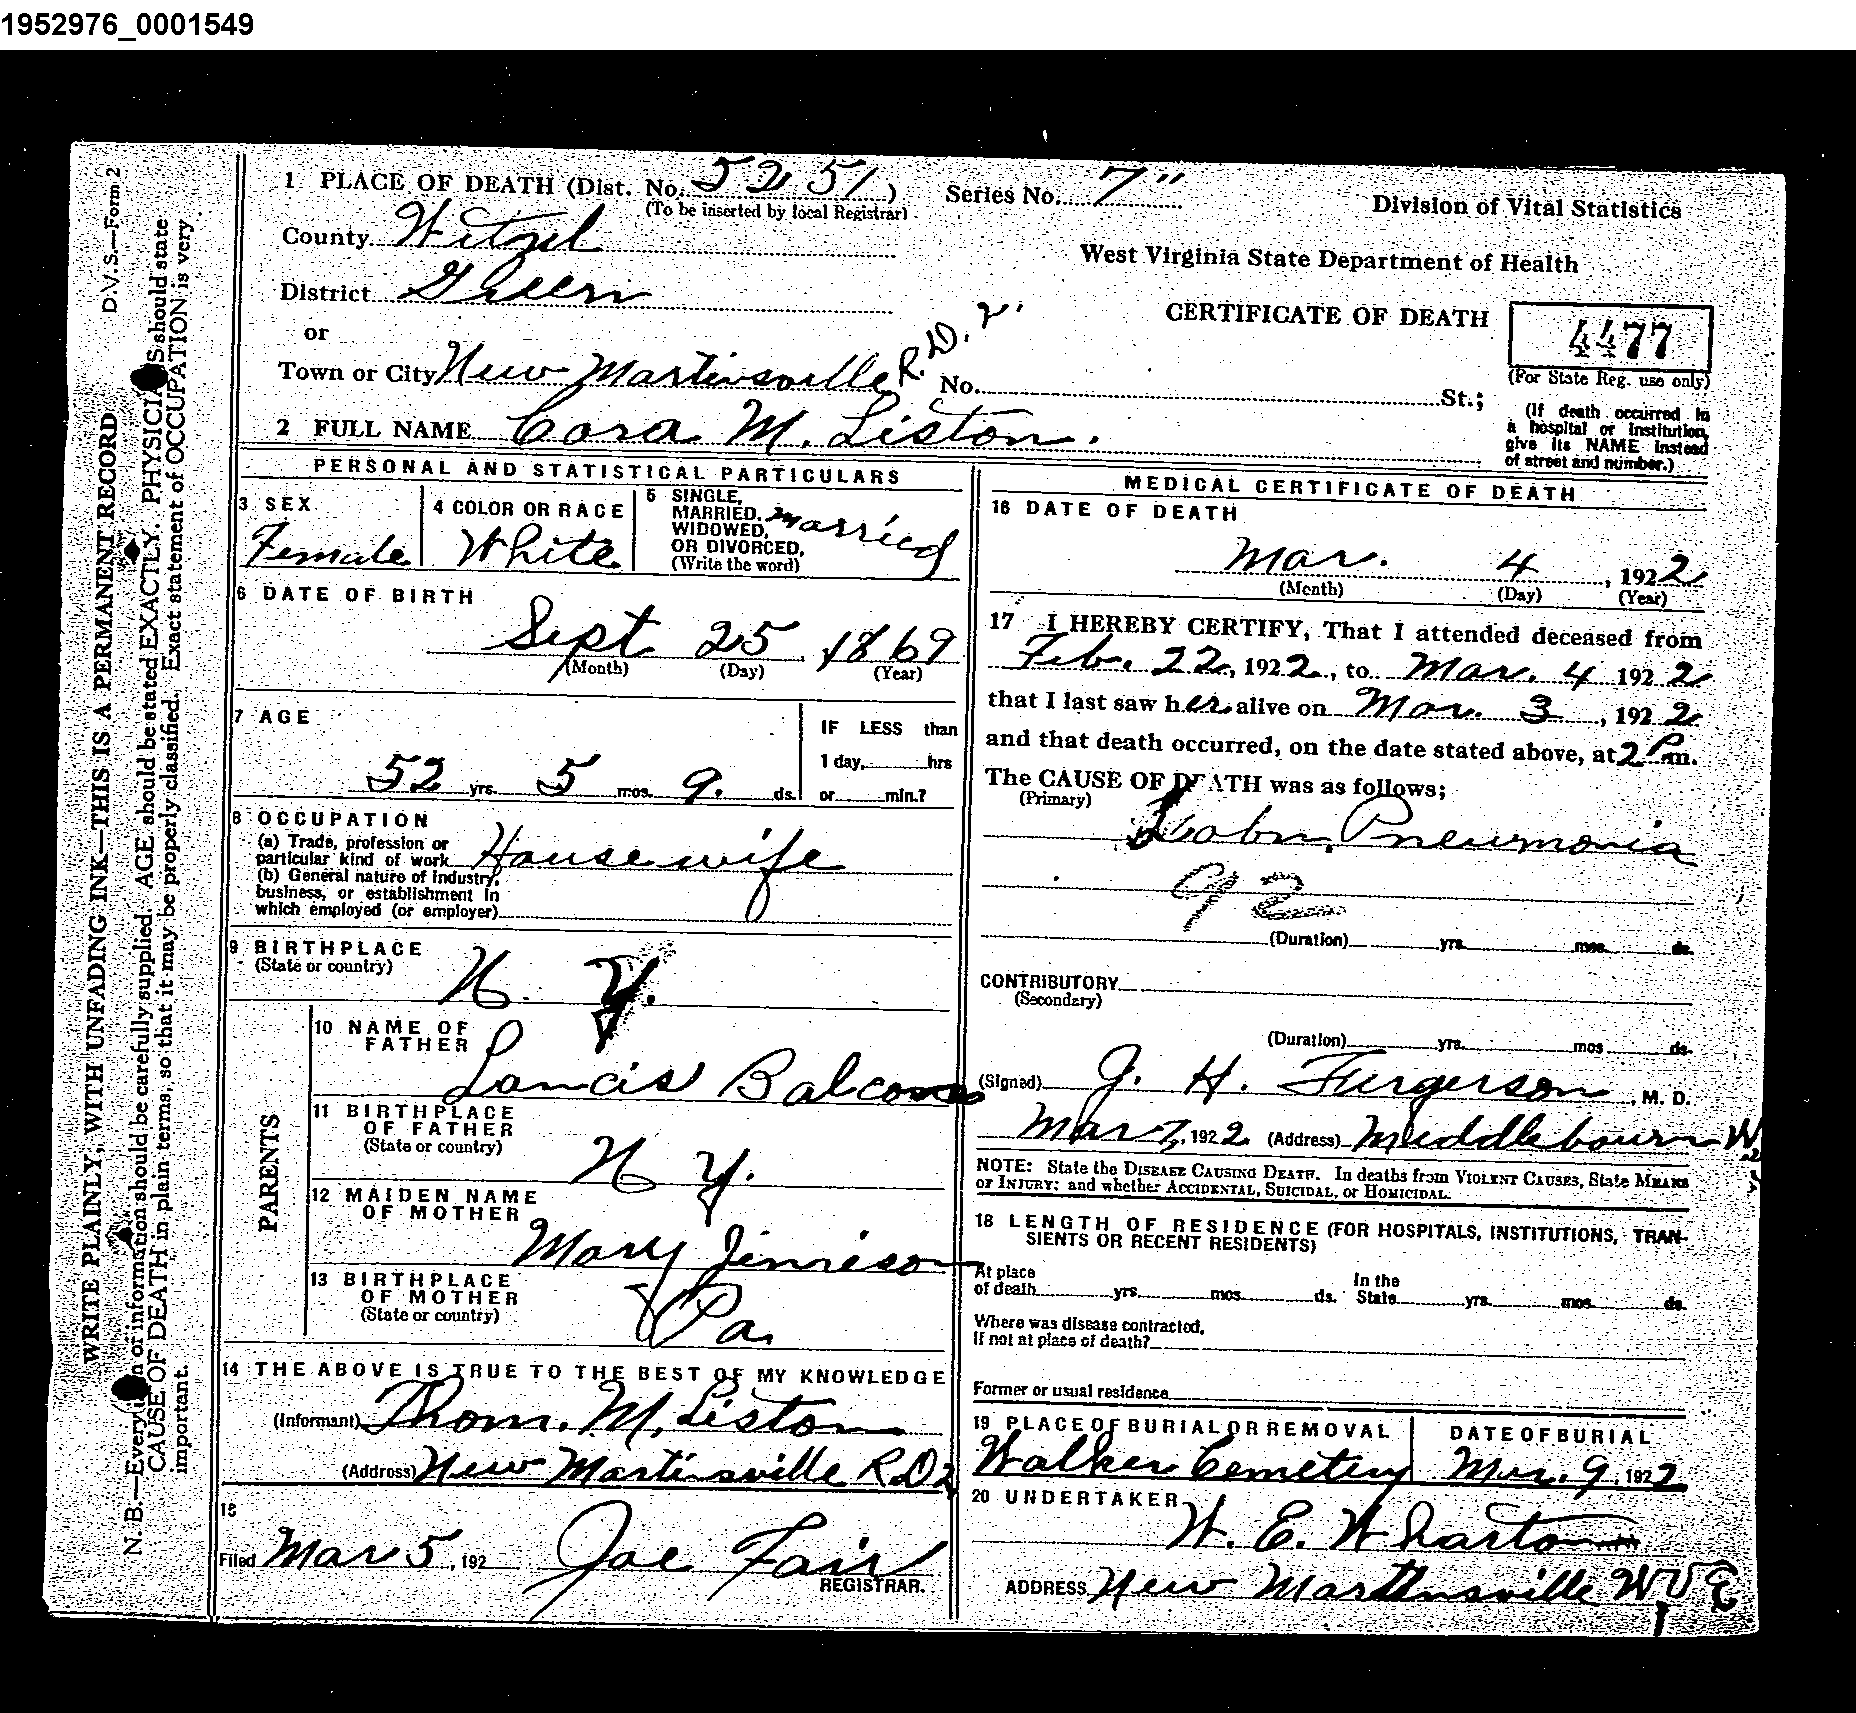 1952976_0001549
D.V.S.—Form 2
WRITE PLAINLY, WITH UNFADING INK—THIS IS A PERMANENT RECORD
N. B.—Every item of information should be carefully supplied. AGE should be stated EXACTLY. PHYSICIANS should state
CAUSE OF DEATH in plain terms, so that it may be properly classified. Exact statement of OCCUPATION is very
important.
1 PLACE OF DEATH (Dist. No. 5251)
(To be inserted by local Registrar)
Series No. 7"
Division of Vital Statistics
County Wetzel
West Virginia State Department of Health
District Green
or
CERTIFICATE OF DEATH
4477
(For State Reg. use only)
Town or City New Martinsville R.D. 2. No. St.;
(If death occurred in
a hospital or institution,
give its NAME instead
of street and number.)
2 FULL NAME Cora M. Liston.
PERSONAL AND STATISTICAL PARTICULARS
3 SEX
Female
4 COLOR OR RACE
White
5 SINGLE,
MARRIED,
WIDOWED,
OR DIVORCED,
(Write the word)
married
6 DATE OF BIRTH
Sept 25 1869
(Month) (Day) (Year)
7 AGE
52 yrs. 5 mos. 9. ds.
IF LESS than
1 day, hrs
or min.?
8 OCCUPATION
(a) Trade, profession or
particular kind of work Housewife
(b) General nature of industry,
business, or establishment in
which employed (or employer)
9 BIRTHPLACE
(State or country)
N. Y.
PARENTS
10 NAME OF
FATHER
Balcom
11 BIRTHPLACE
OF FATHER
(State or country)
N Y.
12 MAIDEN NAME
OF MOTHER
Mary Jennison
13 BIRTHPLACE
OF MOTHER
(State or country)
Pa.
14 THE ABOVE IS TRUE TO THE BEST OF MY KNOWLEDGE
(Informant) Thom. M. Liston
(Address) New Martinsville R D 2
15
Filed Mar 5, 192 Joe Fair
REGISTRAR.
MEDICAL CERTIFICATE OF DEATH
16 DATE OF DEATH
Mar. 4, 1922
(Month) (Day) (Year)
17 I HEREBY CERTIFY, That I attended deceased from
Feb. 22, 1922, to Mar. 4 1922
that I last saw her alive on Mar. 3, 1922
and that death occurred, on the date stated above, at 2 Pm.
The CAUSE OF DEATH was as follows;
(Primary)
Pneumonia
92
(Duration) yrs. mos. ds.
CONTRIBUTORY
(Secondary)
(Duration) yrs. mos ds.
(Signed) J. H. Furgerson, M. D.
Mar 7, 1922 (Address) Middlebourn W
NOTE: State the DISEASE CAUSING DEATH. In deaths from VIOLENT CAUSES, State MEANS
OF INJURY; and whether ACCIDENTAL, SUICIDAL, or HOMICIDAL.
18 LENGTH OF RESIDENCE (FOR HOSPITALS, INSTITUTIONS, TRAN-
SIENTS OR RECENT RESIDENTS)
At place
of death yrs. mos. ds.
In the
State yrs. mos ds.
Where was disease contracted,
if not at place of death?
Former or usual residence
19 PLACE OF BURIAL OR REMOVAL
Walker Cemetery
DATE OF BURIAL
Mar. 9, 1922
20 UNDERTAKER
W. E. Wharton
ADDRESS New Martinsville W Va